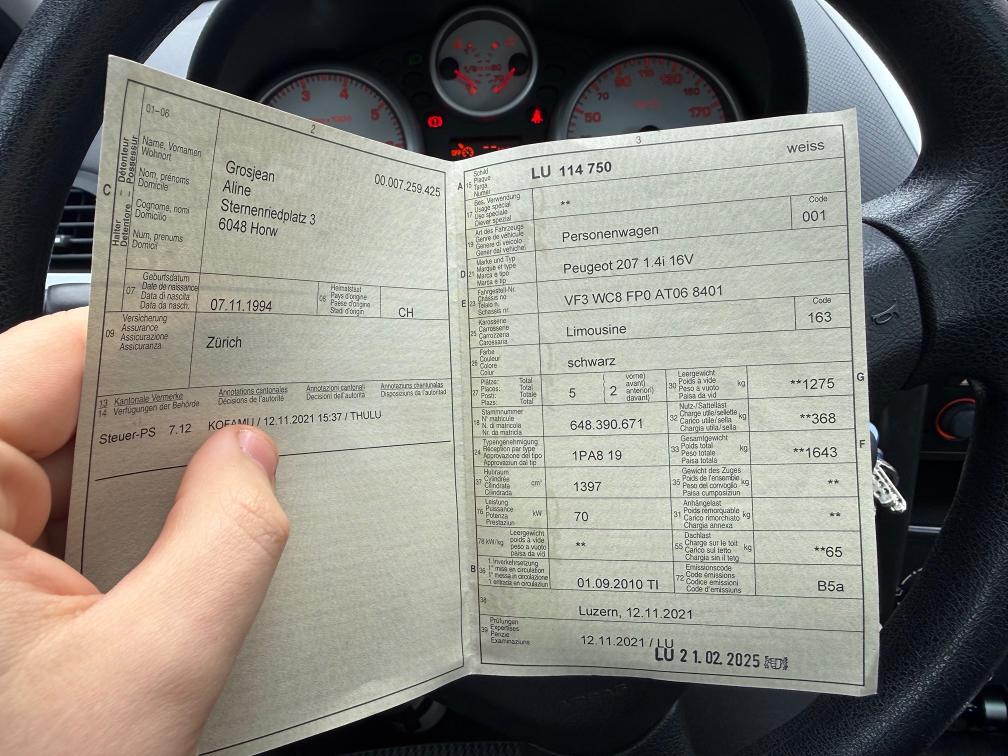 2
01-06
C
Halter Détenteur
Detentore Possessur
Name, Vornamen
Wohnort
Nom, prénoms
Domicile
Cognome, nomi
Domicilio
Num, prenums
Domicil
00.007.259.425
Grosjean
Aline
Sternenriedplatz 3
6048 Horw
07
Geburtsdatum
Date de naissance
Data di nascita
Data da nasch.
07.11.1994
08
Heimatstaat
Pays d'origine
Paese d'origine
Stadi d'origin
CH
09
Versicherung
Assurance
Assicurazione
Assicuranza
Zürich
13 Kantonale Vermerke
14 Verfügungen der Behörde
Annotations cantonales
Décisions de l'autorité
Annotazioni cantonali
Decisioni dell'autorità
Annotaziuns chantunalas
Disposiziuns da l'autoritad
Steuer-PS 7.12 KOFAMU / 12.11.2021 15:37 / THULU
3
A 15
Schild
Plaque
Targa
Numer
LU 114 750
weiss
17
Bes. Verwendung
Usage spécial
Uso speciale
Diever spezial
**
19
Art des Fahrzeugs
Genre de véhicule
Genere di veicolo
Gener dal vehichel
Personenwagen
Code
001
D 21
Marke und Typ
Marque et type
Marca e tipo
Marca e tip
Peugeot 207 1.4i 16V
E 23
Fahrgestell-Nr.
Châssis no
Telaio n.
Chassis nr.
VF3 WC8 FP0 AT06 8401
25
Karosserie
Carrosserie
Carrozzeria
Carossaria
Limousine
Code
163
26
Farbe
Couleur
Colore
Colur
schwarz
27
Plätze: Total
Places: Total
Posti: Totale
Plazs: Total
5
2
vorne)
avant)
anteriori)
davant)
30
Leergewicht
Poids à vide
Peso a vuoto
Paisa da vid
kg
**1275
G
18
Stammnummer
N° matricule
N. di matricola
Nr. da matricla
648.390.671
32
Nutz-/Sattellast
Charge utile/sellette
Carico utile/sella
Chargia utila/sella
kg
**368
24
Typengenehmigung
Réception par type
Approvazione del tipo
Approvaziun dal tip
1PA8 19
33
Gesamtgewicht
Poids total
Peso totale
Paisa totala
kg
**1643
F
37
Hubraum
Cylindrée
Cilindrata
Cilindrada
cm³
1397
35
Gewicht des Zuges
Poids de l'ensemble
Peso del convoglio
Paisa cumposiziun
kg
**
76
Leistung
Puissance
Potenza
Prestaziun
kW
70
31
Anhängelast
Poids remorquable
Carico rimorchiato
Chargia annexa
kg
**
78 kW/kg
Leergewicht
poids à vide
peso a vuoto
paisa da vid
**
55
Dachlast
Charge sur le toit
Carico sul tetto
Chargia sin il tetg
kg
**65
B 36
1. Inverkehrsetzung
1re mise en circulation
1a messa in circolazione
1 entrada en circulaziun
01.09.2010 TI
72
Emissionscode
Code émissions
Codice emissioni
Code d'emissiuns
B5a
38
Luzern, 12.11.2021
39
Prüfungen
Expertises
Perizie
Examinaziuns
12.11.2021 / LU
LU 21.02.2025
3
4
5
50
70
90
110
130
150
170